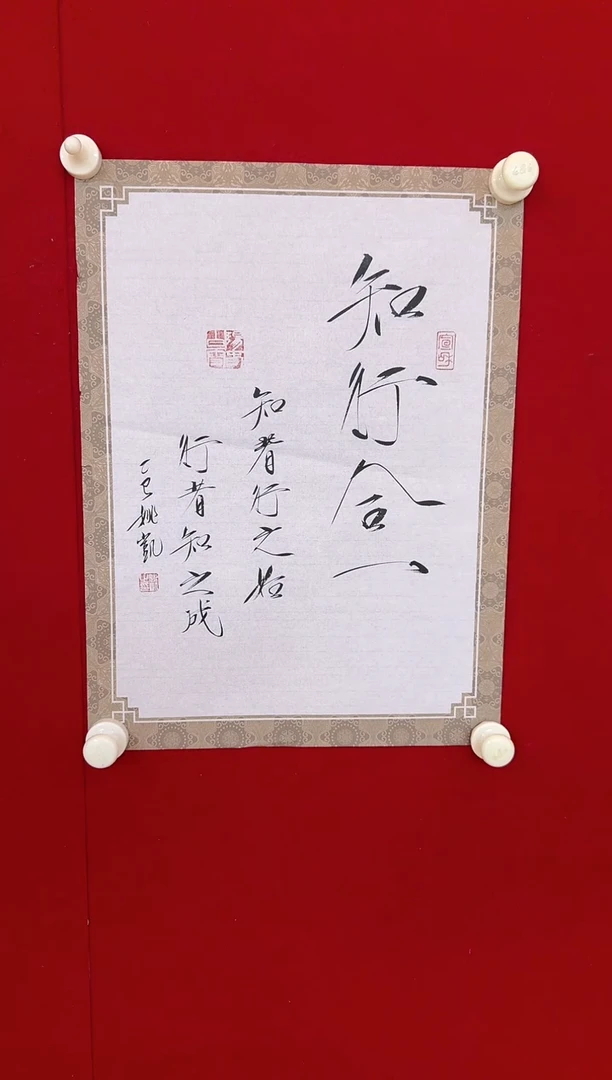 知行合一
知者行之始
行者知之成
乙巳姚凯